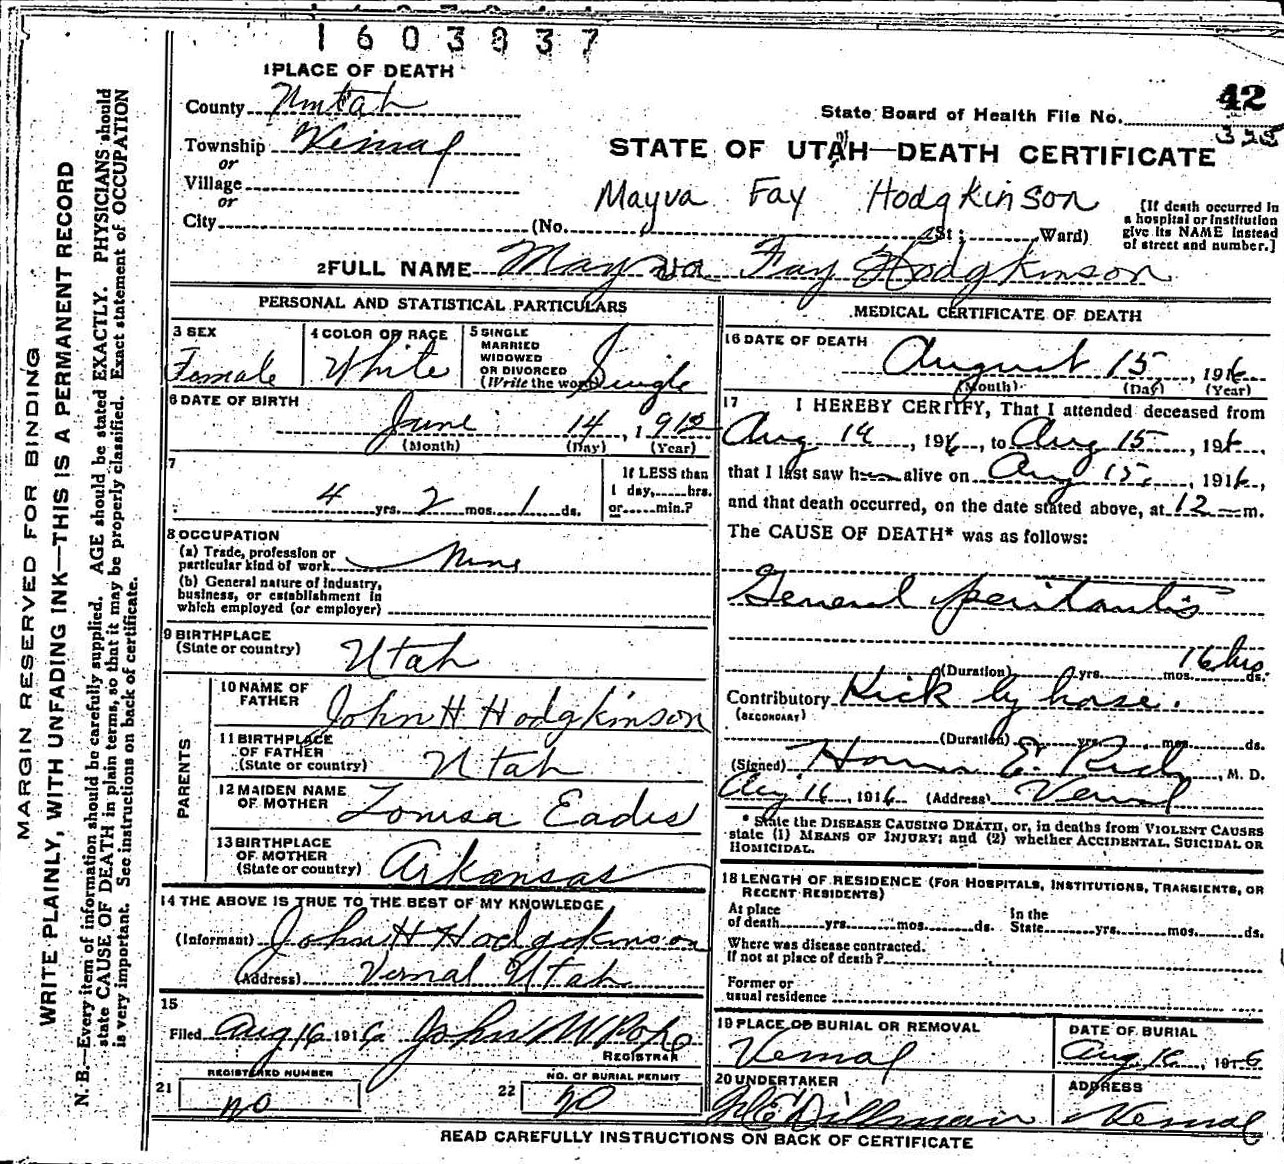 1603037
1 PLACE OF DEATH
County Uintah
42
State Board of Health File No.
Township Vernal
STATE OF UTAH—DEATH CERTIFICATE
or
Village
or
Mayva Fay Hodgkinson
City (No. St; Ward)
[If death occurred in a hospital or institution give its NAME instead of street and number.]
2 FULL NAME Mayva Fay Hodgkinson
PERSONAL AND STATISTICAL PARTICULARS
3 SEX
Female
4 COLOR OR RACE
White
5 SINGLE
MARRIED
WIDOWED
OR DIVORCED
(Write the word)
Single
6 DATE OF BIRTH
June 14, 1912
(Month) (Day) (Year)
7
4 yrs. 2 mos. 1 ds.
If LESS than
1 day, hrs.
or min.?
8 OCCUPATION
(a) Trade, profession or
particular kind of work None
(b) General nature of industry,
business, or establishment in
which employed (or employer)
9 BIRTHPLACE
(State or country)
Utah
PARENTS
10 NAME OF
FATHER
John H Hodgkinson
11 BIRTHPLACE
OF FATHER
(State or country)
Utah
12 MAIDEN NAME
OF MOTHER
Louisa Eades
13 BIRTHPLACE
OF MOTHER
(State or country)
Arkansas
14 THE ABOVE IS TRUE TO THE BEST OF MY KNOWLEDGE
(Informant) John H Hodgkinson
(Address) Vernal Utah
15
Filed Aug 16 1916 John W Pope
REGISTRAR
REGISTERED NUMBER
21
NO. OF BURIAL PERMIT
22
MEDICAL CERTIFICATE OF DEATH
16 DATE OF DEATH
August 15, 1916
(Month) (Day) (Year)
17 I HEREBY CERTIFY, That I attended deceased from
Aug 14, 1916, to Aug 15, 191
that I last saw h alive on Aug 15, 1916,
and that death occurred, on the date stated above, at 12 m.
The CAUSE OF DEATH* was as follows:
General peritonitis
16 hrs
(Duration) yrs. mos. ds.
Contributory Kick by horse.
(SECONDARY)
(Duration) yrs. mos. ds.
(Signed) Homer E. Rich, M. D.
Aug 16, 1916 (Address) Vernal
* State the DISEASE CAUSING DEATH, or, in deaths from VIOLENT CAUSES
state (1) MEANS OF INJURY; and (2) whether ACCIDENTAL, SUICIDAL OR
HOMICIDAL.
18 LENGTH OF RESIDENCE (FOR HOSPITALS, INSTITUTIONS, TRANSIENTS, OR
RECENT RESIDENTS)
At place
of death yrs. mos. ds.
In the
State yrs. mos. ds.
Where was disease contracted.
If not at place of death?
Former or
usual residence
19 PLACE OF BURIAL OR REMOVAL
Vernal
DATE OF BURIAL
Aug. 16, 1916
20 UNDERTAKER
Dillman
ADDRESS
Vernal
READ CAREFULLY INSTRUCTIONS ON BACK OF CERTIFICATE
MARGIN RESERVED FOR BINDING
WRITE PLAINLY, WITH UNFADING INK—THIS IS A PERMANENT RECORD
N. B.—Every item of information should be carefully supplied. AGE should be stated EXACTLY. PHYSICIANS should
state CAUSE OF DEATH in plain terms, so that it may be properly classified. Exact statement of OCCUPATION
is very important. See instructions on back of certificate.